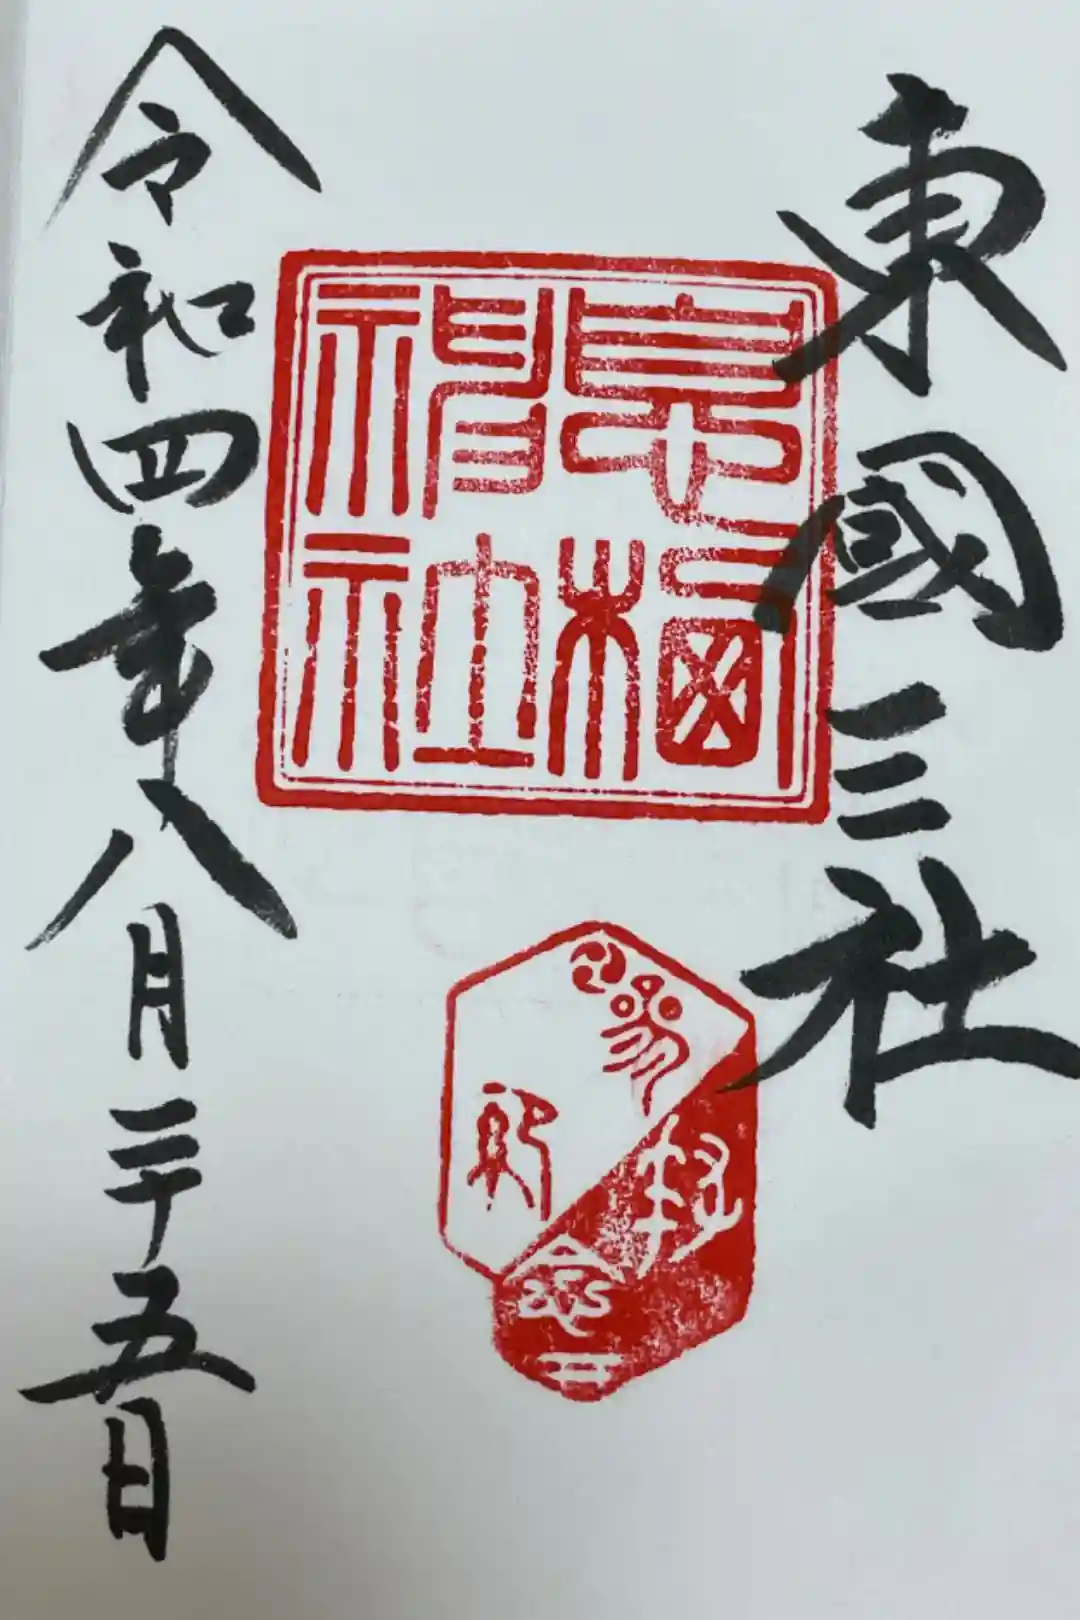 東國三社
息栖
神社
参拝
記念
令和四年八月二十五日